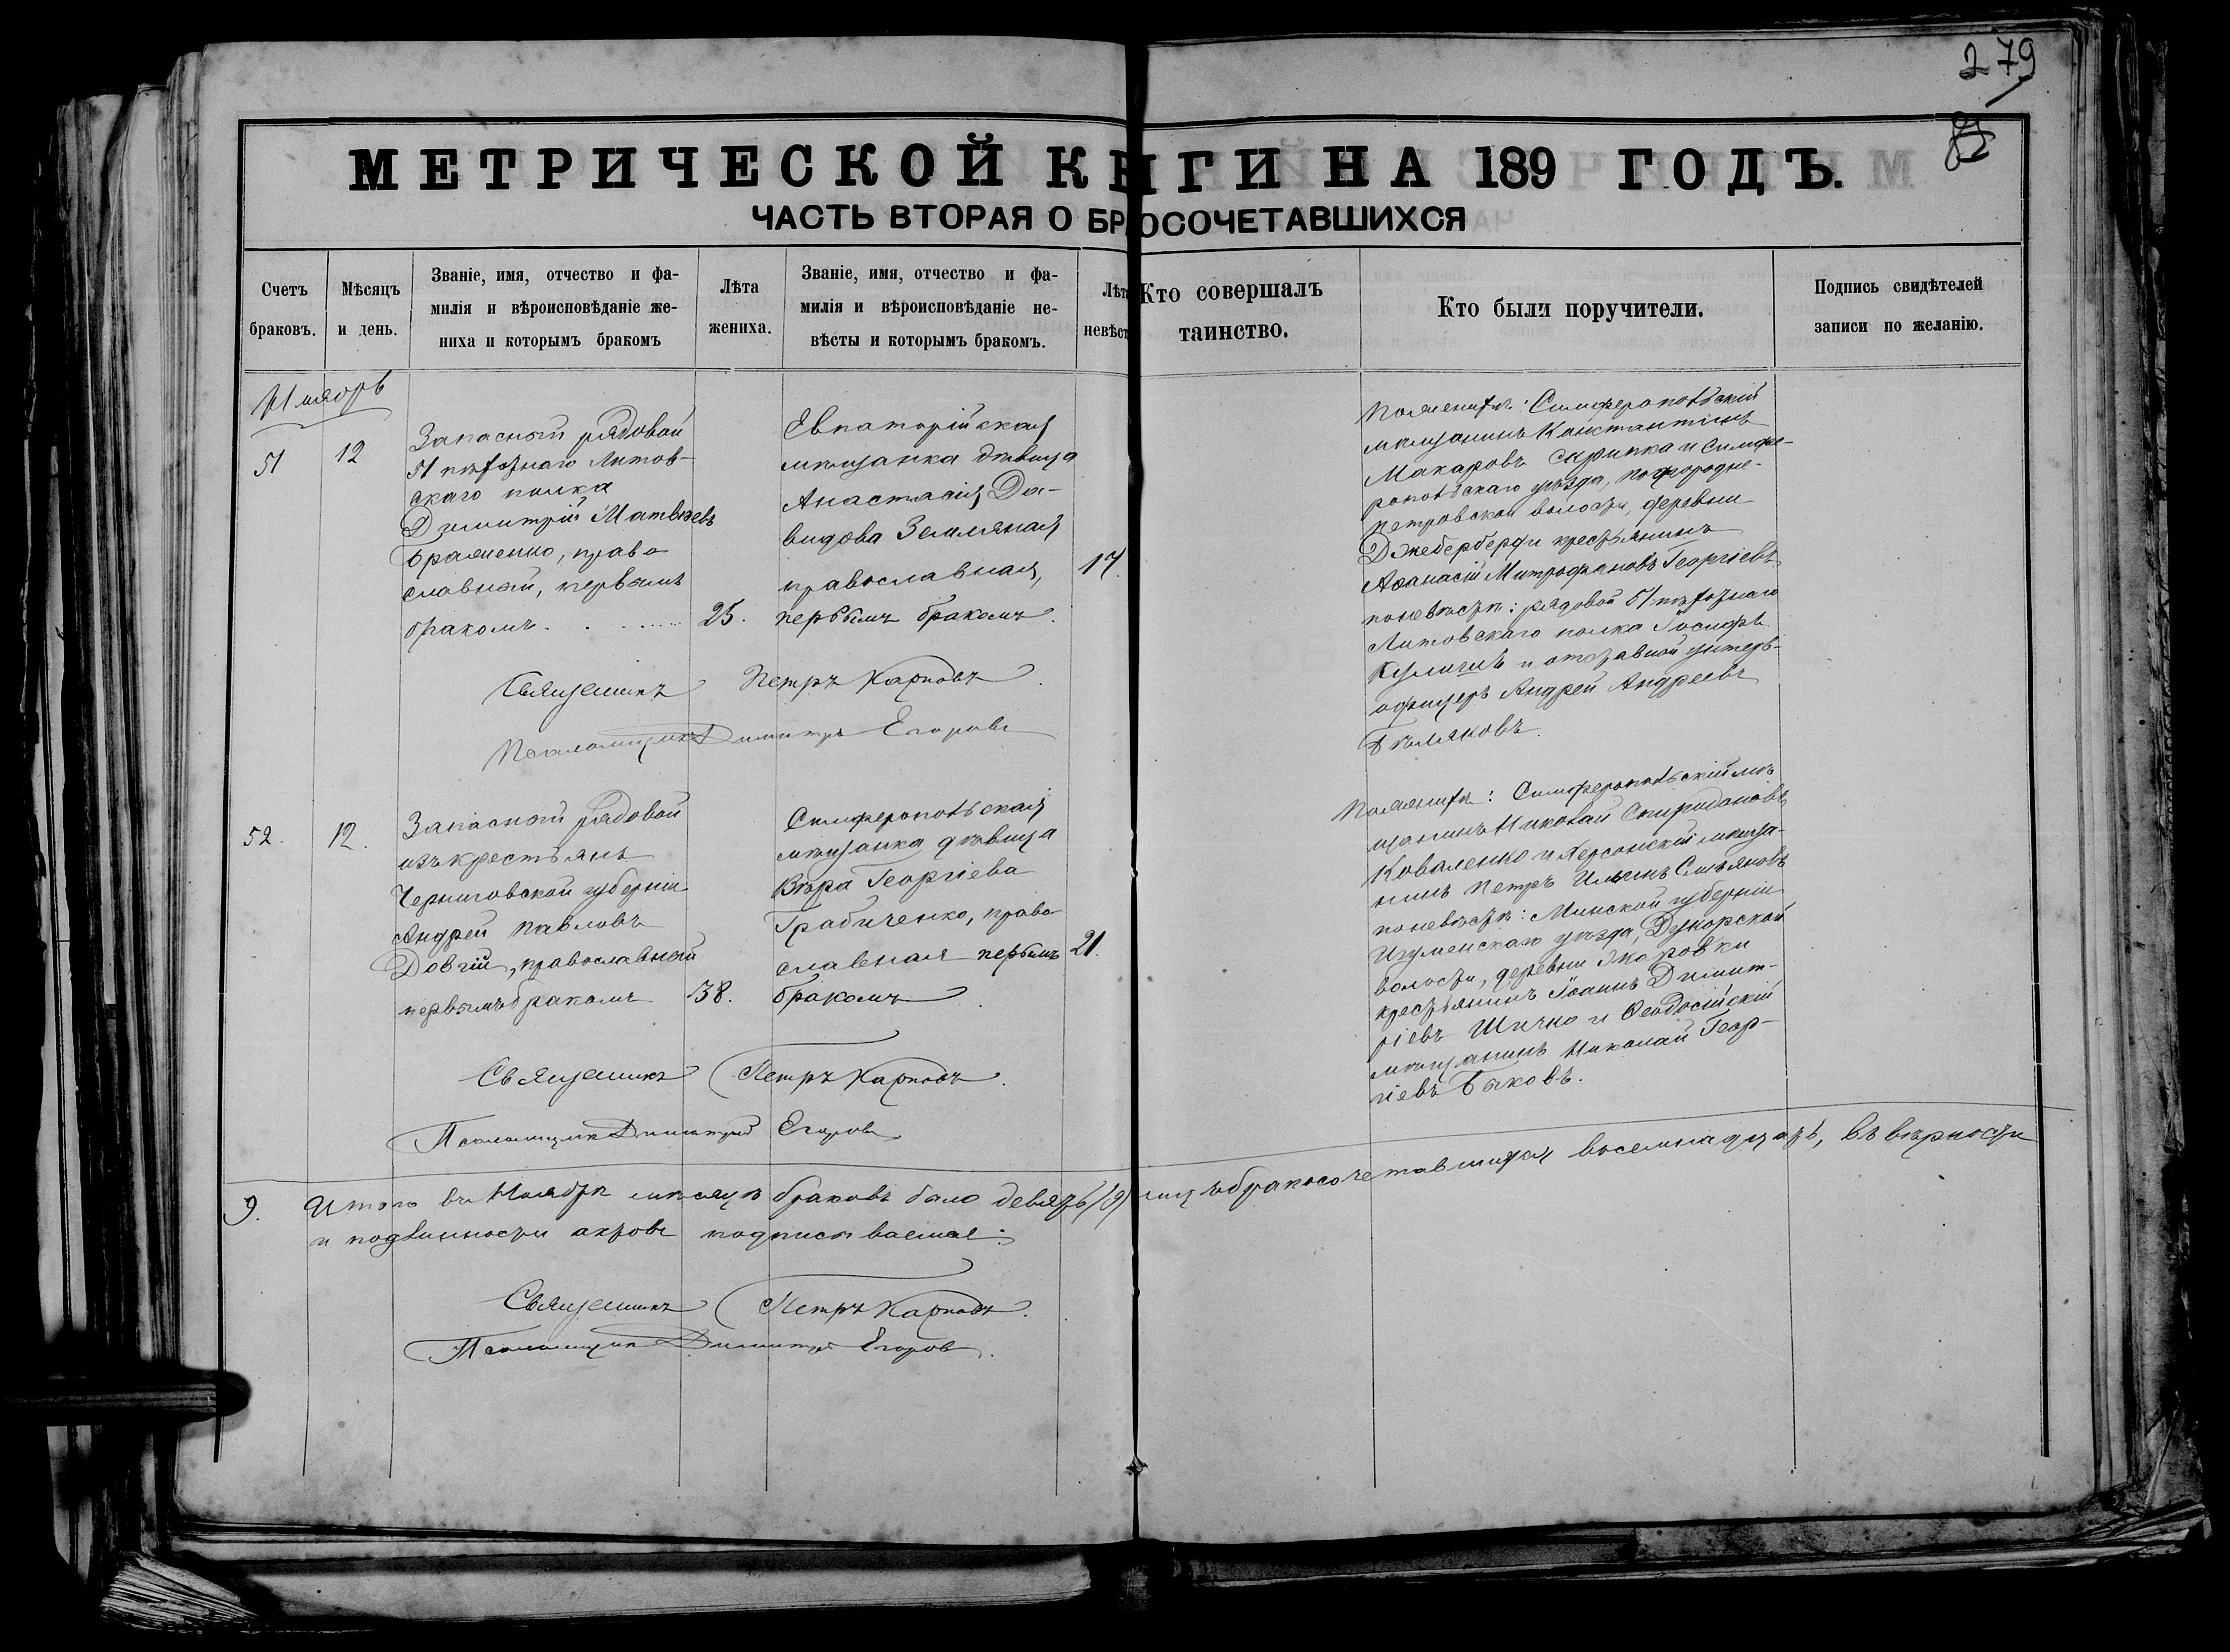 279
МЕТРИЧЕСКОЙ КНИГИ НА 189 ГОДЪ.
ЧАСТЬ ВТОРАЯ О БРАКОСОЧЕТАВШИХСЯ
Счетъ
браковъ.
Мѣсяцъ
и день.
Званіе, имя, отчество и фа-
милія и вѣроисповѣданіе же-
ниха и которымъ бракомъ
Лѣта
жениха.
Званіе, имя, отчество и фа-
милія и вѣроисповѣданіе не-
вѣсты и которымъ бракомъ.
Лѣта
невѣст
Кто совершалъ
таинство.
Кто были поручители.
Подпись свидѣтелей
записи по желанію.
Ноябрь
51
12
Запасный рядовой
51 пѣхотнаго Литов-
скаго полка
Димитрій Матвѣевъ
Браженко, право
славный, первымъ
бракомъ.
25.
Евпаторійская
мѣщанка дѣвица
Анастасія Да-
видова Земляная
православная,
первымъ бракомъ.
17.
По женихѣ: Симферопольскій
мѣщанинъ Константинъ
Макаровъ Скрипка и Симфе-
ропольскаго уѣзда, Подгородне-
Петровской волости, деревни
Джеберберди крестьянинъ
Аѳанасій Митрофановъ Георгіевъ
по невѣстѣ: рядовой 51 пѣхотнаго
Литовскаго полка Іосифъ
и отставной унтеръ-
офицеръ Андрей Андреевъ
Бѣляковъ.
Священникъ Петръ Карповъ.
Псаломщикъ Димитрій Егоровъ
52.
12.
Запасный рядовой
изъ крестьянъ
Черниговской губерніи
Андрей Павловъ
Довгій, православный
первымъ бракомъ
38.
Симферопольская
мѣщанка дѣвица
Вѣра Георгіева
Грабиченко, право
славная первымъ
бракомъ.
21.
По женихѣ: Симферопольскій мѣ
щанинъ Николай Спиридоновъ
Коваленко и Херсонскій мѣща-
нинъ Петръ Ильинъ
по невѣстѣ: Минской губерніи
Игуменскаго уѣзда, Дукорской
волости, деревни
крестьянинъ Іоаннъ Димит-
ріевъ Шичко и Ѳеодосійскій
мѣщанинъ Николай Геор-
гіевъ Быковъ.
Священникъ Петръ Карповъ.
Псаломщикъ Димитрій Егоровъ
9. Итого въ Ноябрѣ мѣсяцѣ браковъ было девять (9) лицъ бракосочетавшихся восемнадцать, въ вѣрности
и подлинности актовъ подписываемся:
Священникъ Петръ Карповъ.
Псаломщикъ Димитрій Егоровъ.